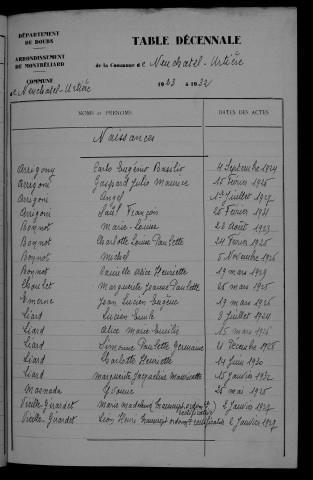 DÉPARTEMENT
DU DOUBS
ARRONDISSEMENT
DE MONTBÉLIARD
COMMUNE
de Neuchatel-Urtière
TABLE DÉCENNALE
de la Commune de Neuchatel-Urtière
1923 à 1932
NOMS ET PRÉNOMS
DATES DES ACTES
Naissances
Arrigony Carlo Eugénio Basilio 4 Septembre 1924
Arrigoni Gaspard Julio Maurice 15 Février 1926
Arrigoni Angel 1er Juillet 1927
Arrigoni Saül François 20 Février 1931
Bonnot Marie Louise 28 Août 1923
Bonnot Charlotte Louise Paulette 24 Février 1925
Bonnot Michel 5 Novembre 1926
Bonnot Camille Alice Henriette 19 mars 1929
Choulet Marguerite Jeanne Paulette 26 mars 1925
Emerne Jean Lucien Eugène 19 mars 1926
Liard Lucien Emile 8 Juillet 1924
Liard Alice Marie Emilie 15 mars 1926
Liard Simonne Paulette Germaine 21 Décembre 1928
Liard Charlotte Henriette 14 Juin 1930
Liard Marguerite Jacqueline Mauricette 15 Janvier 1932
Masnada Yvonne 26 mai 1925
Vieille Girardet Marie Madeleine 2 Janvier 1927
Vieille Girardet Léon Henri rectificatif 2 Janvier 1927